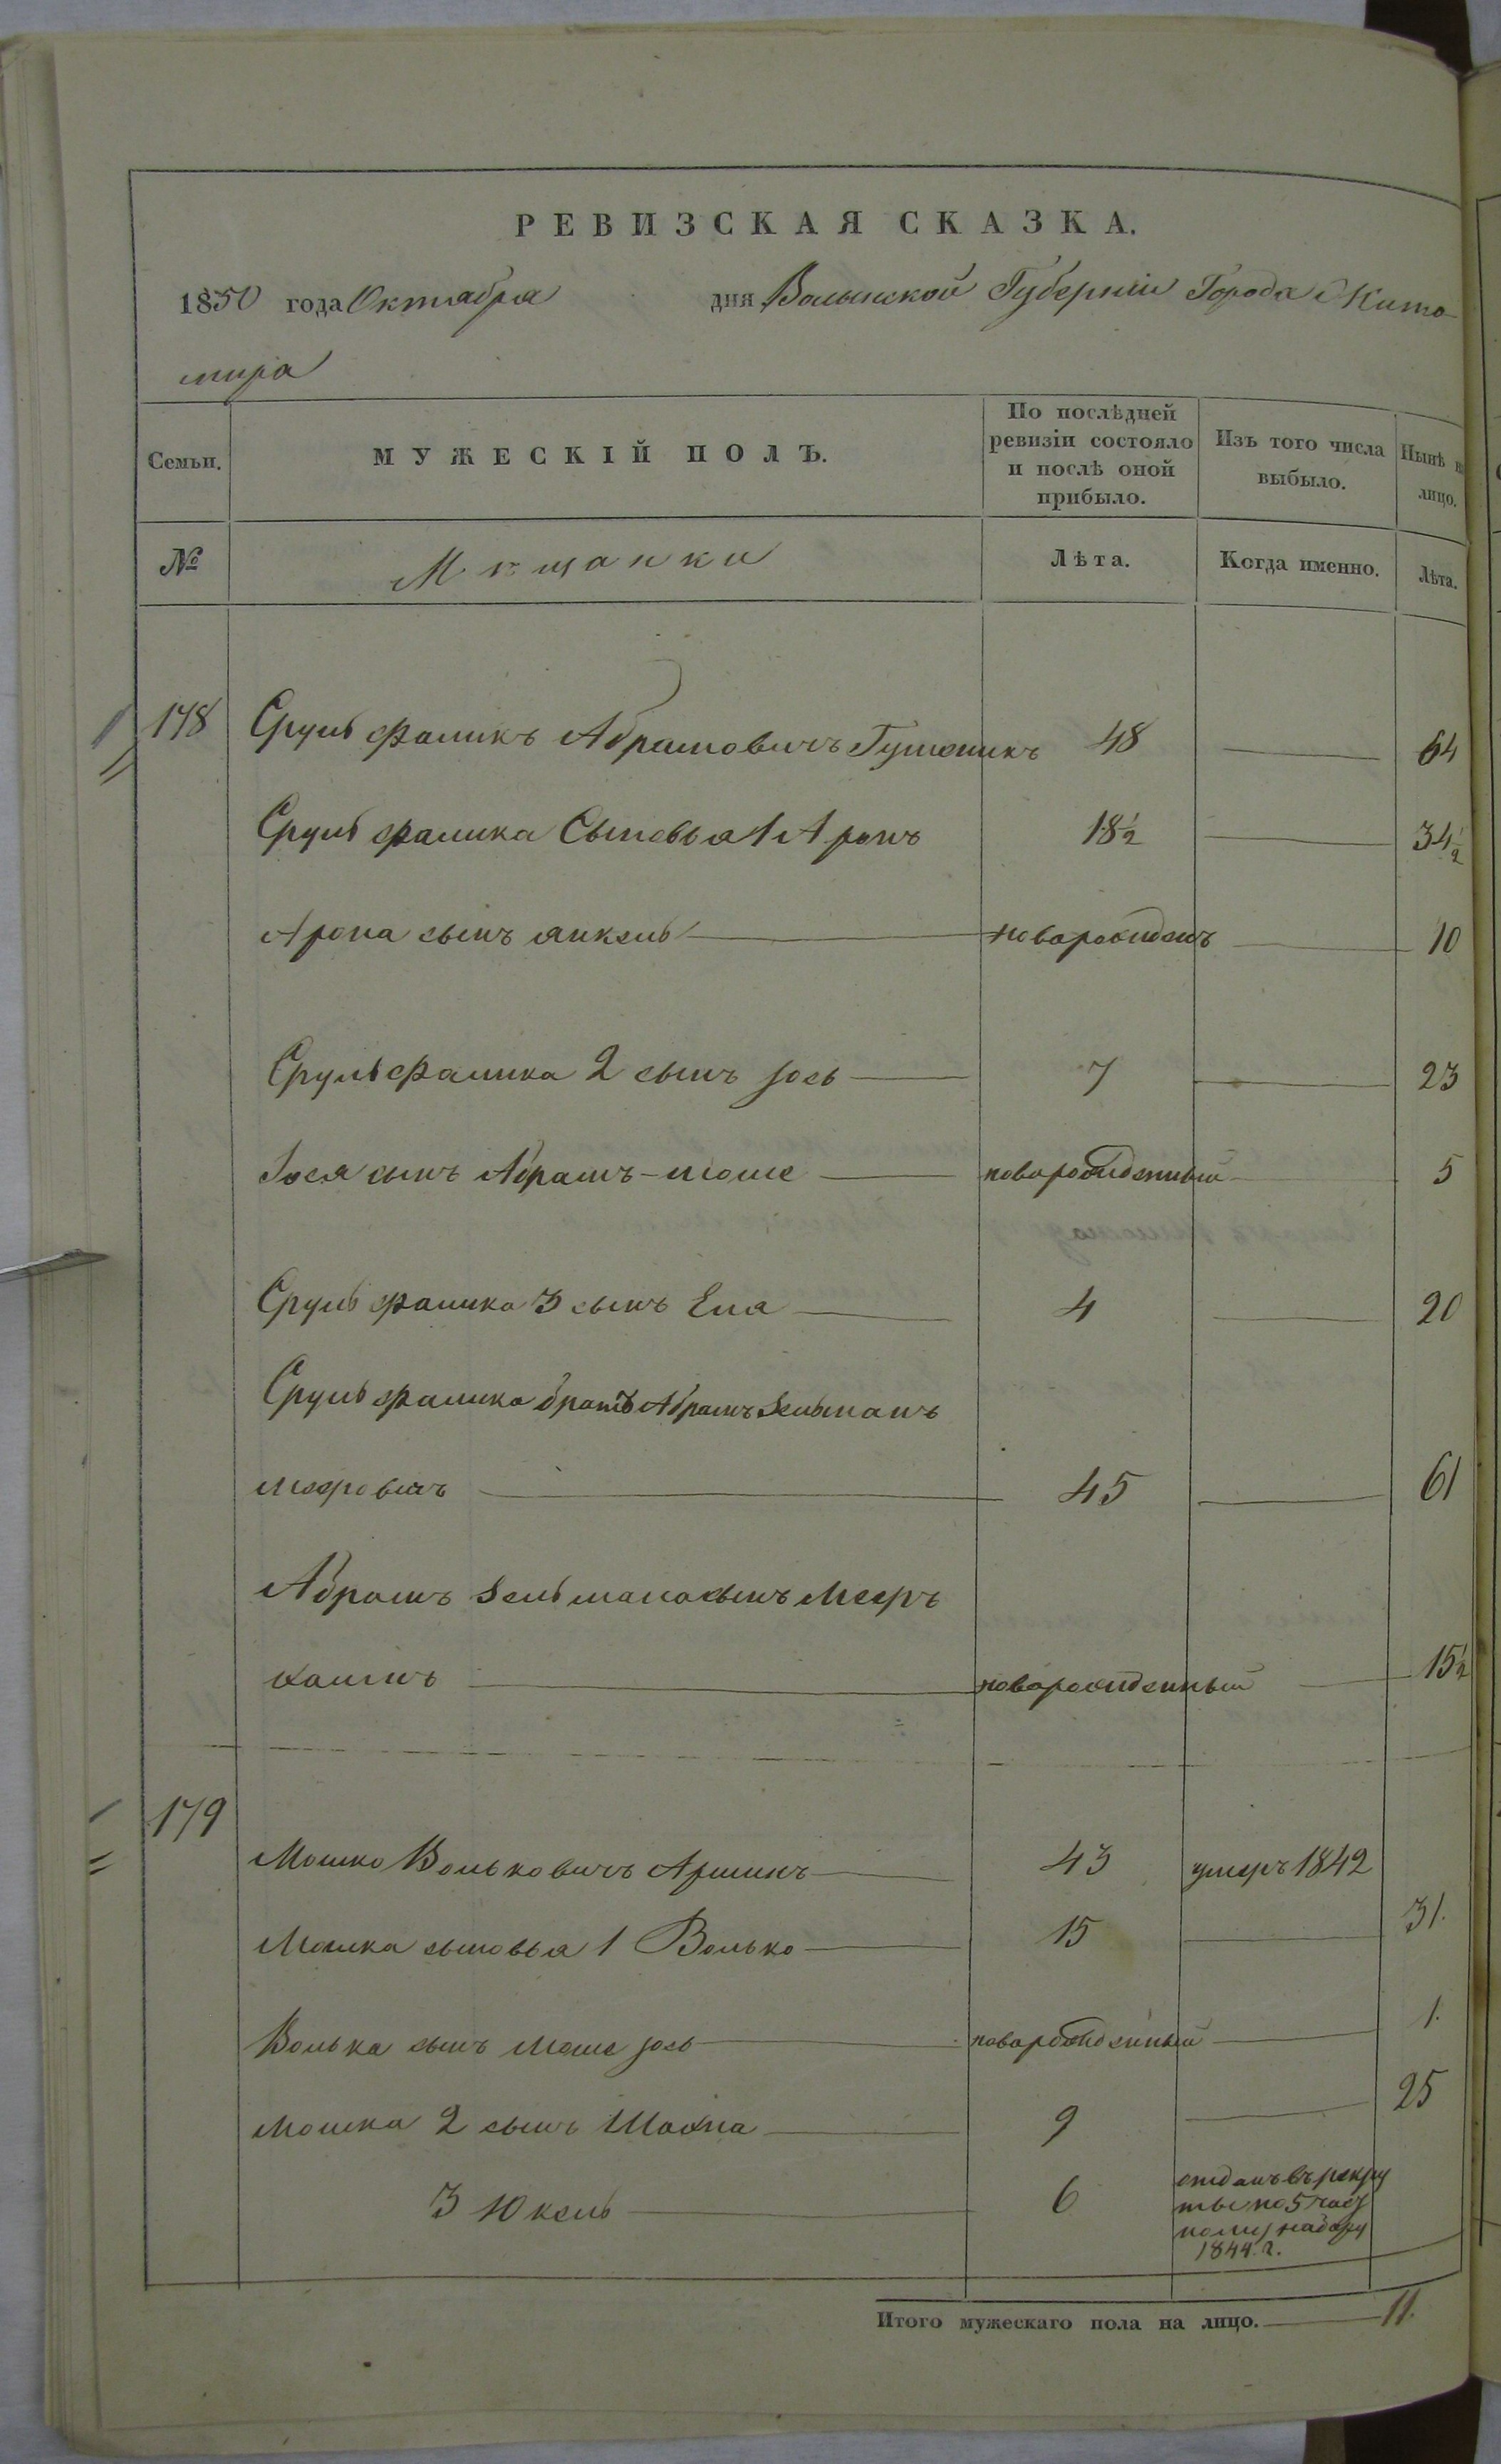 РЕВИЗСКАЯ СКАЗКА.
1850 года Октября дня Волынской Губерніи Города Жито-
мира
Семьи. МУЖЕСКІЙ ПОЛЪ. По послѣдней ревизіи состояло и послѣ оной прибыло. Изъ того числа выбыло. Нынѣ на лицо.
№ Мѣщанки Лѣта. Когда именно. Лѣта.
178 Сруль Фаликъ Абрамовичъ 48 64
Сруль Фалика Сыновья 1 Аронъ 18½ 34½
Арона сынъ Янкель новорожденъ 10
Сруль Фалика 2 сынъ Іось 7 23
Іося сынъ Абрамъ-Моше новорожденный 5
Сруль Фалика 3 сынъ Еля 4 20
Сруль Фалика братъ Абрамъ Зельманъ
Мееровичъ 45 61
Абрамъ Зельмана сынъ Мееръ
Хаимъ новорожденный 15½
179 Мошко Вольковичъ 43 умеръ 1842
Мошка сыновья 1 Волько 15 31.
Волька сынъ Моше Іось новорожденный 1.
Мошка 2 сынъ Шахна 9 25
3 Юкель 6 отданъ въ рекру
ты по 5 част
ному набору
1844. г.
Итого мужескаго пола на лицо. 11.